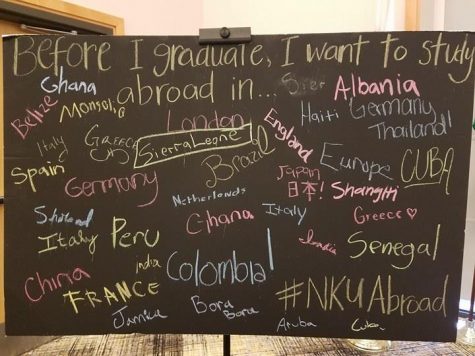 Before I graduate, I want to study
abroad in...
Ghana
Albania
Belize
Mongolia
London
Haiti
Germany
Thailand!
England
Italy
Greece
Sierra Leone
Brazil
Spain
Europe
CUBA
Germany
Japan
日本!
Netherlands
Ghana
Italy
Greece ♡
Italy
Peru
Senegal
India
China
Colombia!
FRANCE
#NKUAbroad
Bora
Bora
Aruba